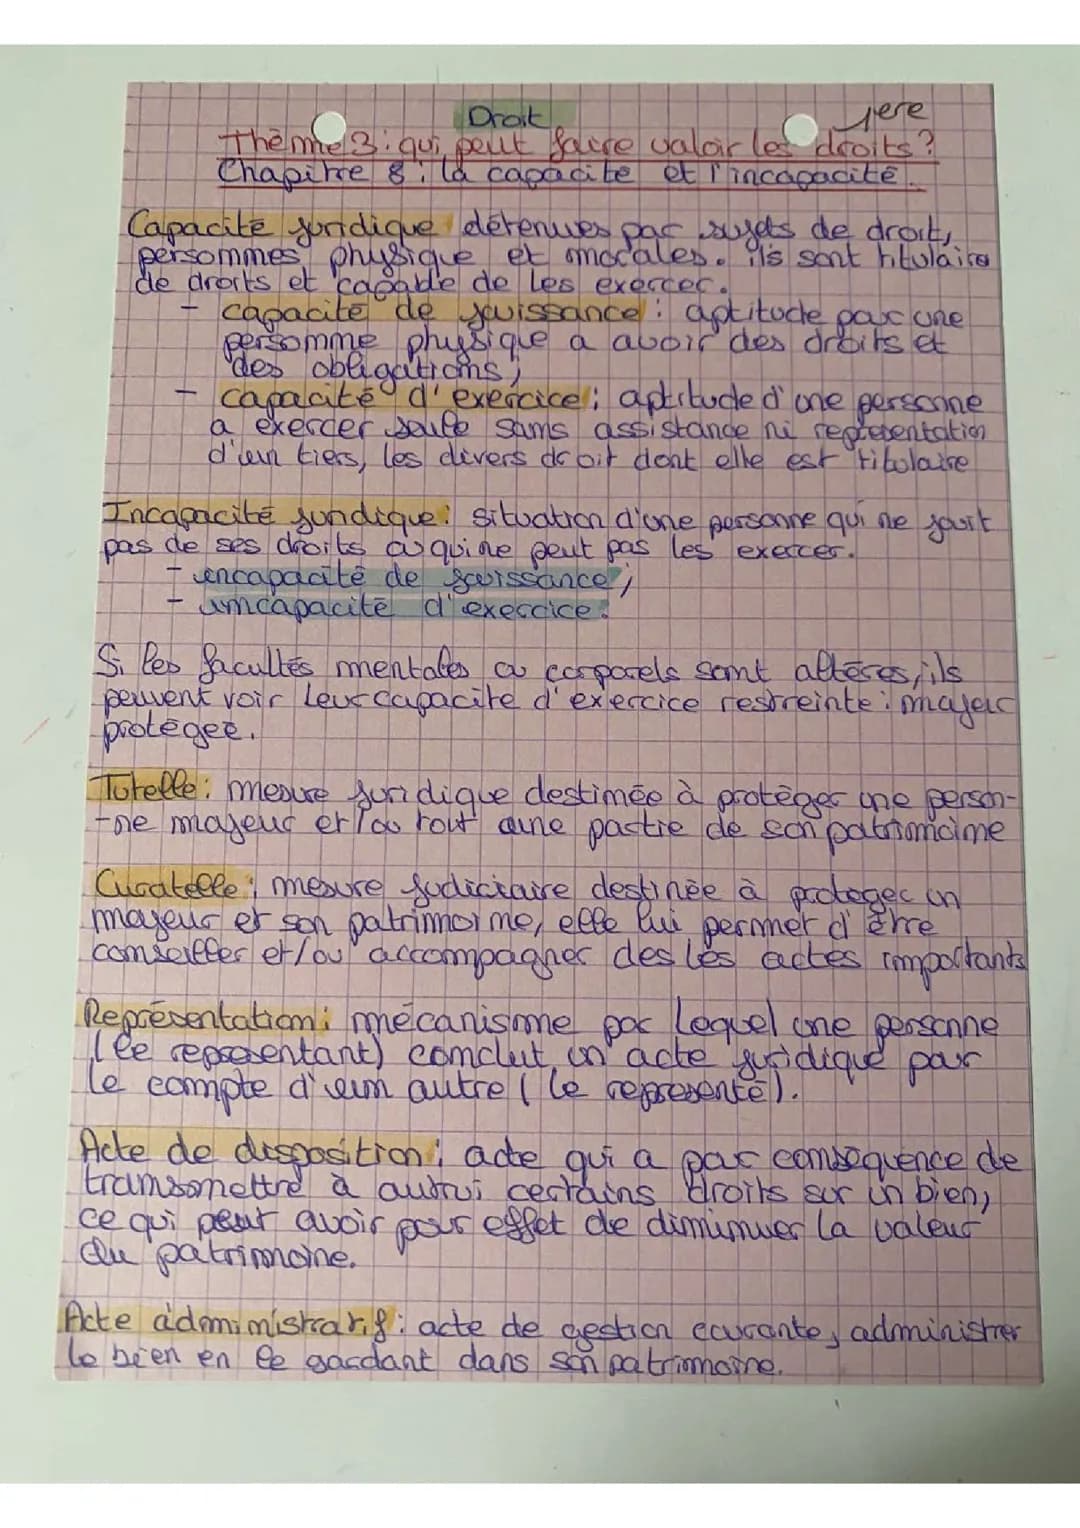 Droit
1ere
Thème 3 : qui peut faire valoir les droits ?
Chapitre 8 : la capacité et l'incapacité.
Capacité juridique détenues par sujets de droit,
personnes physique et morales. ils sont titulaire
de droits et capable de les exercer.
- capacité de jouissance : aptitude par une
personne physique a avoir des droits et
des obligations ;
- capacité d'exercice : aptitude d'une personne
a exercer seule sans assistance ni representation
d'un tiers, les divers droit dont elle est titulaire
Incapacité juridique : situation d'une personne qui ne jouit
pas de ses droits ou qui ne peut pas les exercer.
- incapacité de jouissance ;
- incapacité d'exercice.
Si les facultés mentales ou corporels sont altéres, ils
peuvent voir leur capacite d'exercice restreinte : majeur
protégée.
Tutelle : mesure juridique destinée à protéger une person-
-ne majeur et/ou tout ou une partie de son patrimoine
Curatelle : mesure judiciaire destinée à proteger un
majeur et son patrimoine, elle lui permet d'être
conseiller et/ou accompagner des les actes importants
Représentation : mécanisme par lequel une personne
(le representant) conclut un acte juridique par
le compte d'un autre (le representé).
Acte de disposition : acte qui a par consequence de
transmettre à autrui certains droits sur un bien,
ce qui peut avoir pour effet de diminuer la valeur
du patrimoine.
Acte administratif : acte de gestion courante, administrer
le bien en le gardant dans son patrimoine.